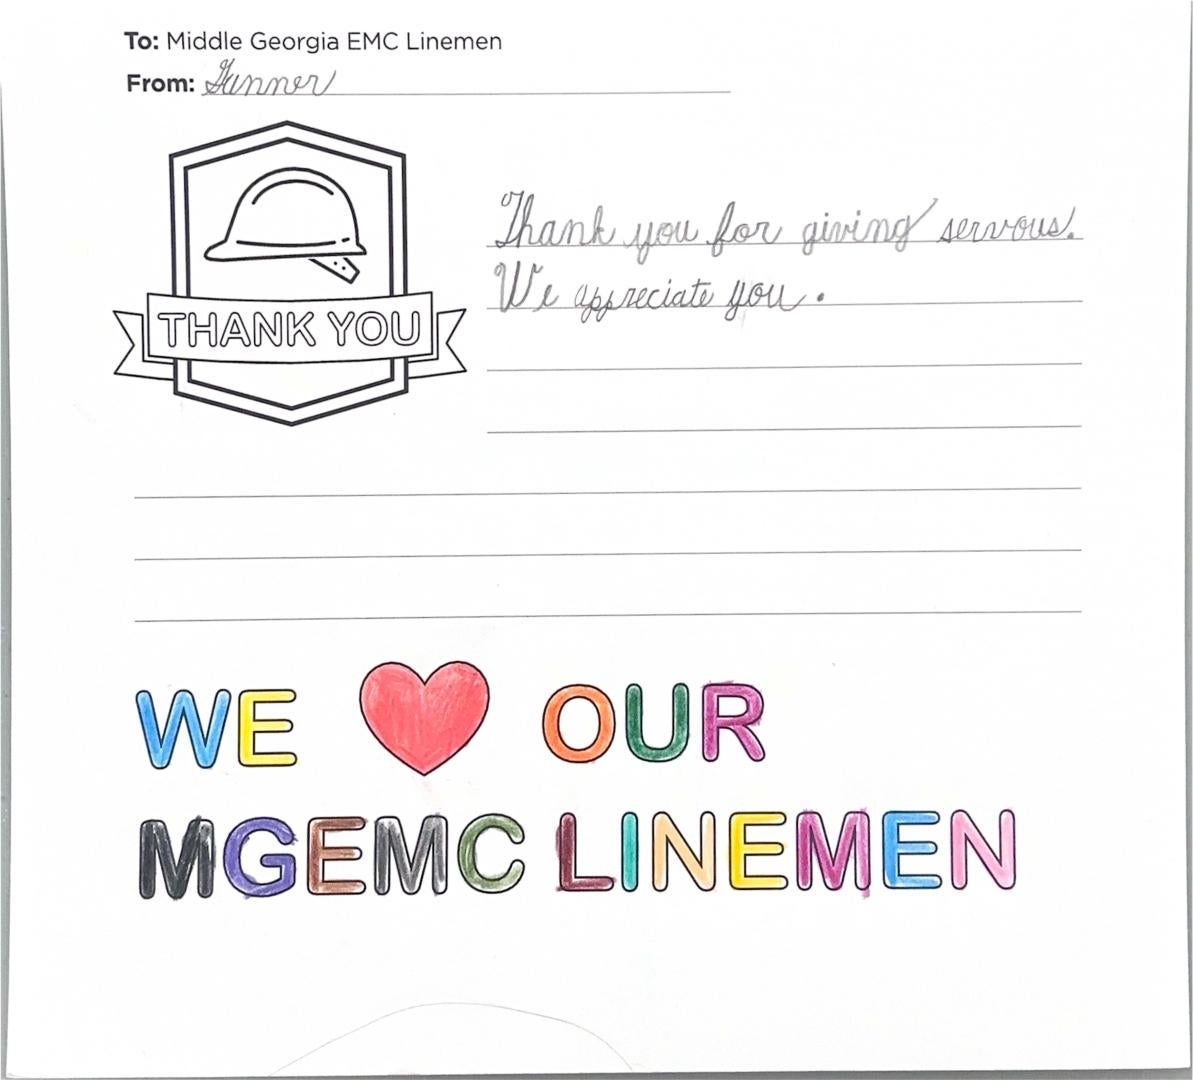 To: Middle Georgia EMC Linemen
From: Gunner
THANK YOU
Thank you for giving servous.
We appreciate you.
WE ❤ OUR
MGEMC LINEMEN